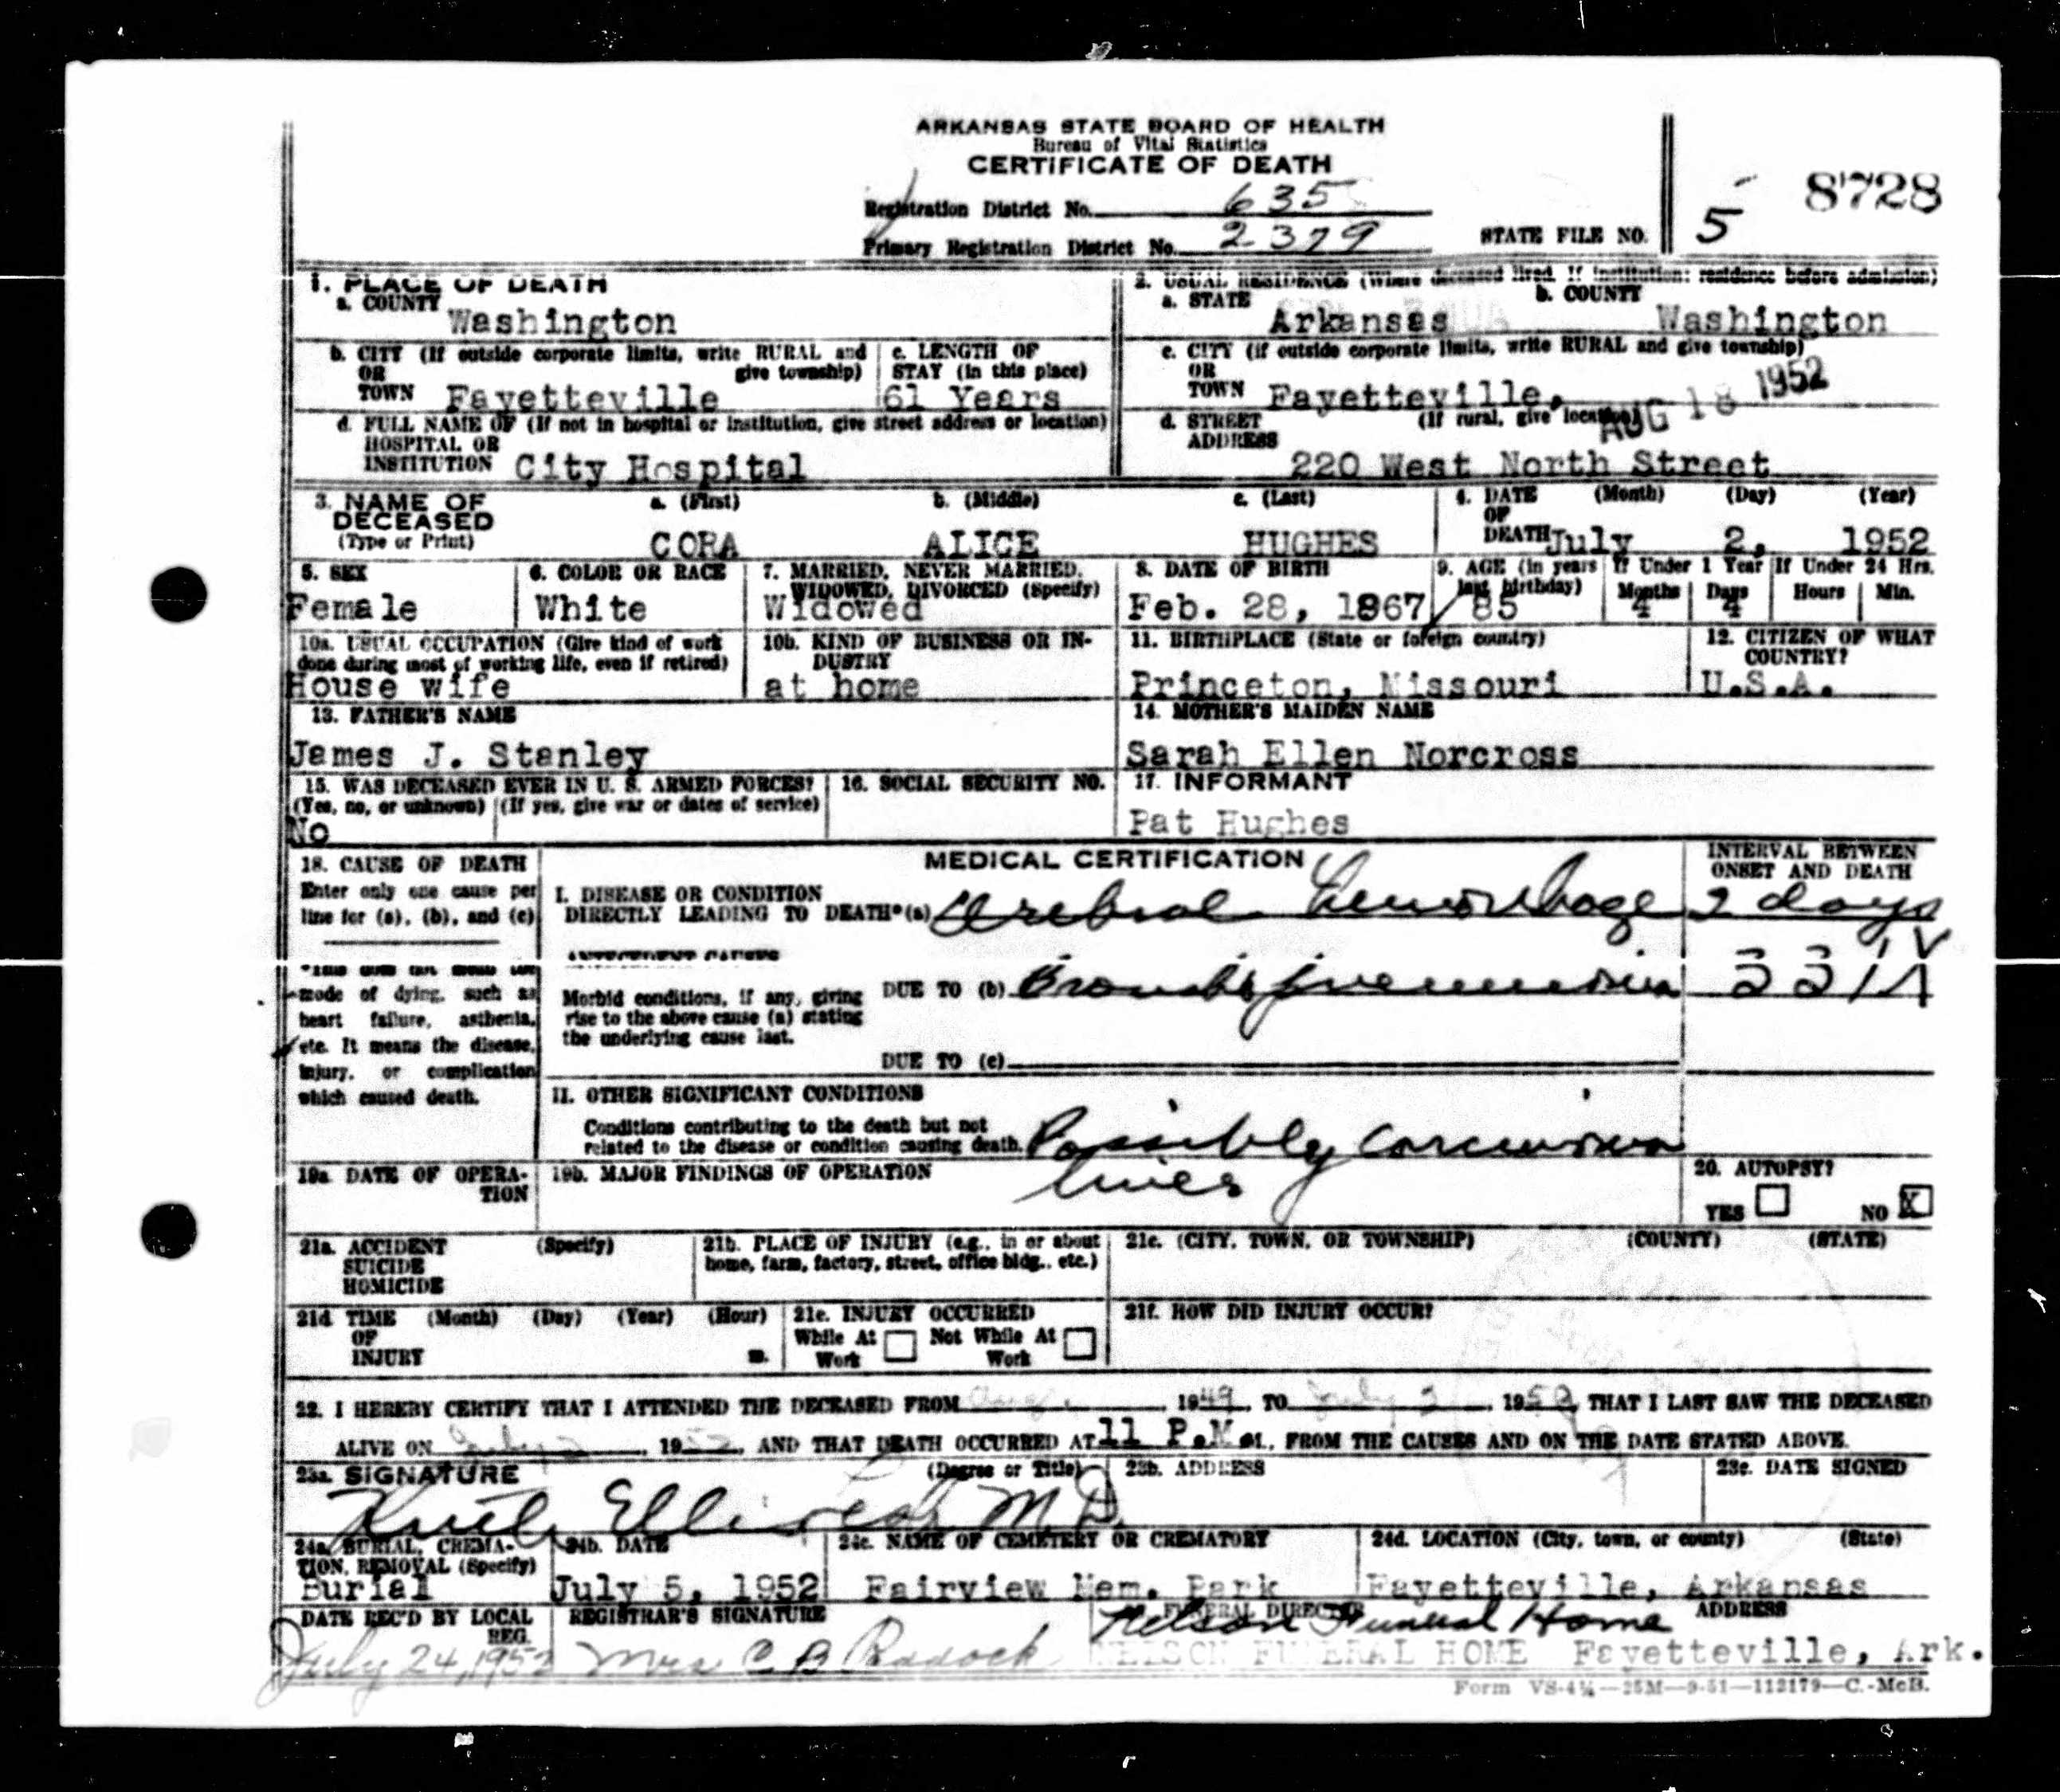 ARKANSAS STATE BOARD OF HEALTH
Bureau of Vital Statistics
CERTIFICATE OF DEATH
8728
Registration District No. 635
Primary Registration District No. 2379 STATE FILE NO. 5
1. PLACE OF DEATH
a. COUNTY Washington
2. USUAL RESIDENCE (Where deceased lived. If institution: residence before admission)
a. STATE Arkansas b. COUNTY Washington
b. CITY (If outside corporate limits, write RURAL and give township)
OR TOWN Fayetteville
c. LENGTH OF STAY (in this place)
61 Years
c. CITY (if outside corporate limits, write RURAL and give township)
OR TOWN Fayetteville,
AUG 18 1952
d. FULL NAME OF (If not in hospital or institution, give street address or location)
HOSPITAL OR INSTITUTION City Hospital
d. STREET ADDRESS (If rural, give location)
220 West North Street
3. NAME OF DECEASED (Type or Print)
a. (First) b. (Middle) c. (Last)
CORA ALICE HUGHES
4. DATE OF DEATH (Month) (Day) (Year)
July 2, 1952
5. SEX
Female
6. COLOR OR RACE
White
7. MARRIED, NEVER MARRIED, WIDOWED, DIVORCED (Specify)
Widowed
8. DATE OF BIRTH
Feb. 28, 1867
9. AGE (in years last birthday)
85
If Under 1 Year If Under 24 Hrs.
Months 4 Days 4 Hours Min.
10a. USUAL OCCUPATION (Give kind of work done during most of working life, even if retired)
House wife
10b. KIND OF BUSINESS OR INDUSTRY
at home
11. BIRTHPLACE (State or foreign country)
Princeton, Missouri
12. CITIZEN OF WHAT COUNTRY?
U.S.A.
13. FATHER'S NAME
James J. Stanley
14. MOTHER'S MAIDEN NAME
Sarah Ellen Norcross
15. WAS DECEASED EVER IN U. S. ARMED FORCES?
(Yes, no, or unknown) (If yes, give war or dates of service)
No
16. SOCIAL SECURITY NO.
17. INFORMANT
Pat Hughes
18. CAUSE OF DEATH
Enter only one cause per line for (a), (b), and (c)
*This does not mean the mode of dying, such as heart failure, asthenia, etc. It means the disease, injury, or complication which caused death.
MEDICAL CERTIFICATION
INTERVAL BETWEEN ONSET AND DEATH
I. DISEASE OR CONDITION
DIRECTLY LEADING TO DEATH*(a) Cerebral hemorrhage 2 days
ANTECEDENT CAUSES
Morbid conditions, if any, giving rise to the above cause (a) stating the underlying cause last.
DUE TO (b) Broncho pneumonia
331
DUE TO (c)
II. OTHER SIGNIFICANT CONDITIONS
Conditions contributing to the death but not related to the disease or condition causing death. Possibly carcinoma
liver
19a. DATE OF OPERATION
19b. MAJOR FINDINGS OF OPERATION
20. AUTOPSY?
YES NO X
21a. ACCIDENT SUICIDE HOMICIDE (Specify)
21b. PLACE OF INJURY (e.g., in or about home, farm, factory, street, office bldg., etc.)
21c. (CITY, TOWN, OR TOWNSHIP) (COUNTY) (STATE)
21d. TIME OF INJURY (Month) (Day) (Year) (Hour) m.
21e. INJURY OCCURRED
While At Work Not While At Work
21f. HOW DID INJURY OCCUR?
22. I HEREBY CERTIFY THAT I ATTENDED THE DECEASED FROM Aug. 1949, TO July 2, 1952, THAT I LAST SAW THE DECEASED
ALIVE ON July 2, 1952, AND THAT DEATH OCCURRED AT 11 P.M. M., FROM THE CAUSES AND ON THE DATE STATED ABOVE.
23a. SIGNATURE (Degree or Title)
Ruth Ellis M D
23b. ADDRESS
23c. DATE SIGNED
24a. BURIAL, CREMATION, REMOVAL (Specify)
Burial
24b. DATE
July 5, 1952
24c. NAME OF CEMETERY OR CREMATORY
Fairview Mem. Park
24d. LOCATION (City, town, or county) (State)
Fayetteville, Arkansas
DATE REC'D BY LOCAL REG.
July 24, 1952
REGISTRAR'S SIGNATURE
Mrs C B
FUNERAL DIRECTOR ADDRESS
Nelson Funeral Home
NELSON FUNERAL HOME Fayetteville, Ark.
Form VS-4¼—25M—9-51—112179—C.-McB.